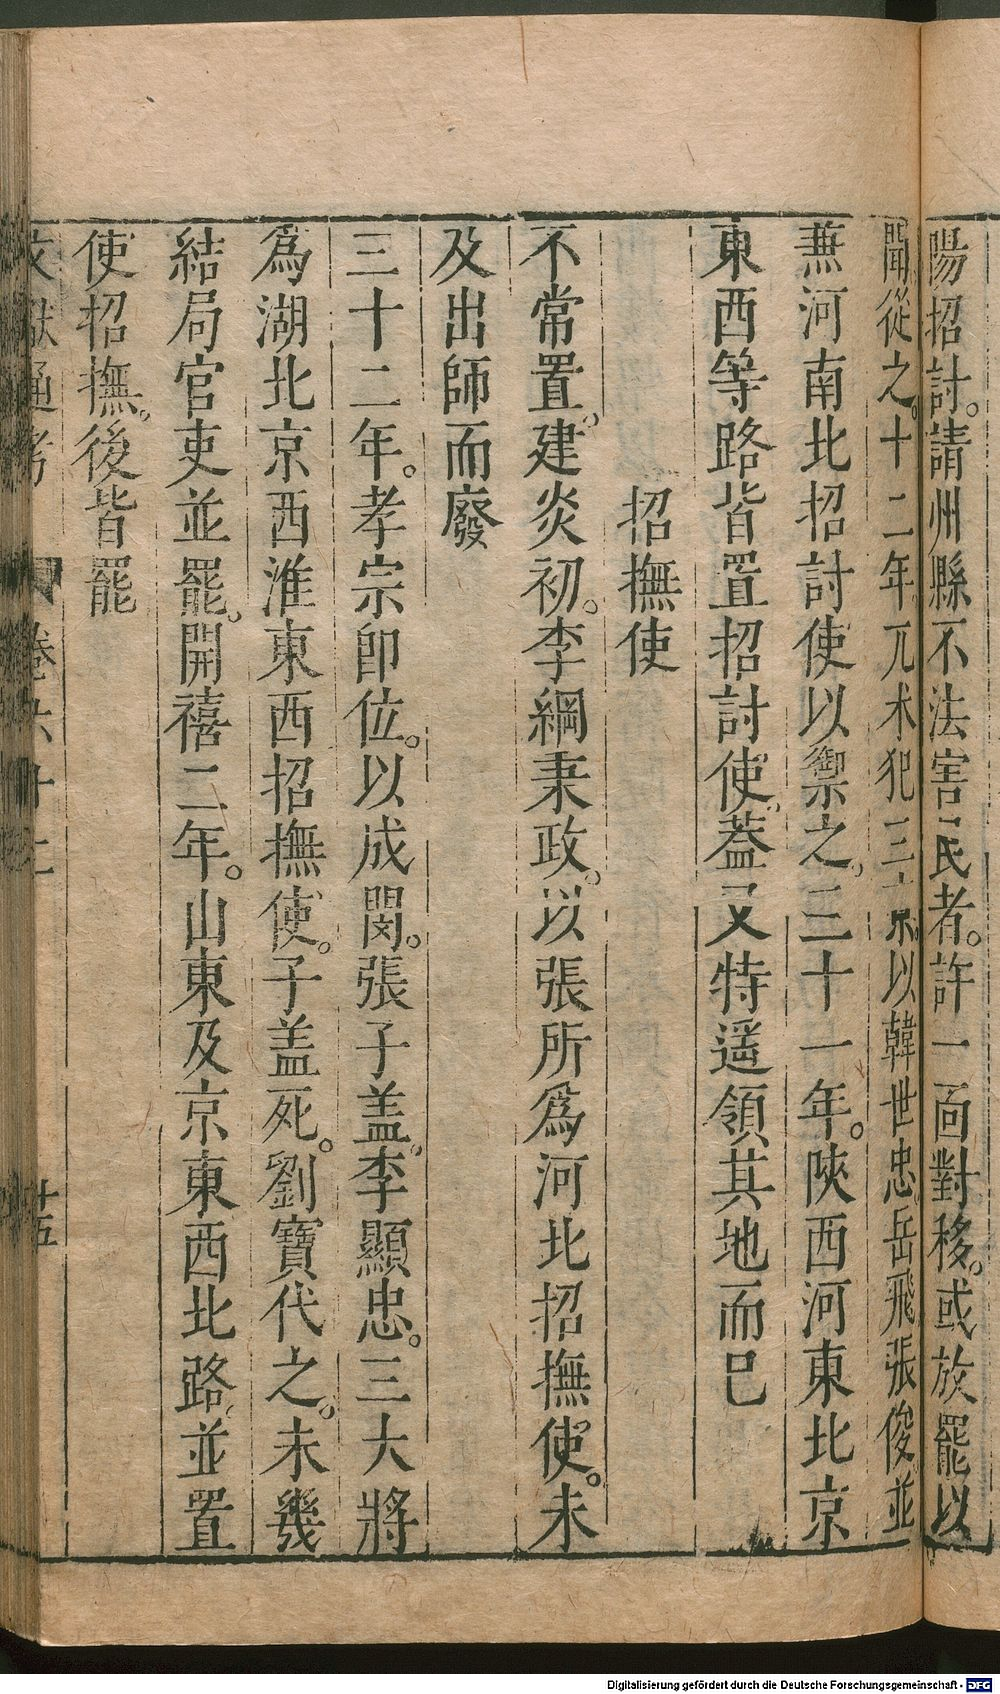 陽招討。請州縣不法害民者。許一面對移。或放罷以
聞從之。十二年兀朮犯三京。以韓世忠岳飛張俊並
兼河南北招討使以禦之。三十一年。陝西河東北京
東西等路皆置招討使。蓋又特遥領其地而已
招撫使
不常置。建炎初。李綱秉政。以張所爲河北招撫使。未
及出師而廢
三十二年。孝宗即位。以成閔。張子盖。李顯忠。三大將
爲湖北京西淮東西招撫使。子盖死。劉寶代之。未幾
結局官吏並罷。開禧二年。山東及京東西北路。並置
使招撫。後皆罷
文獻通考 卷六十二 十五
Digitalisierung gefördert durch die Deutsche Forschungsgemeinschaft - DFG